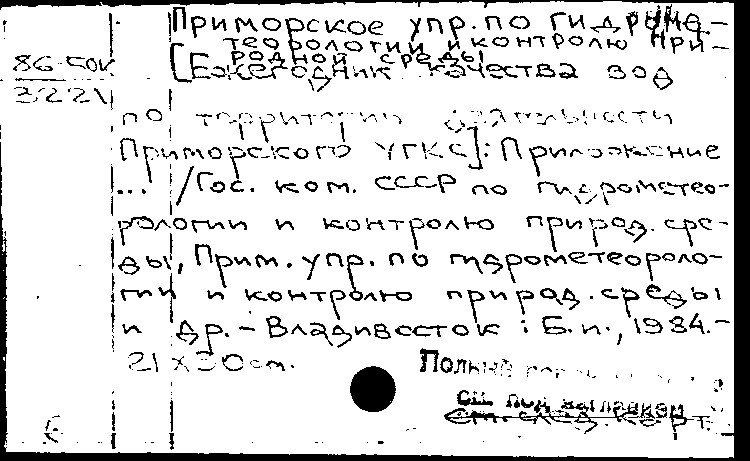 Приморское упр. по гидроме-
теорологии и контролю при-
родной среды
86-50к
3221
[Ежегодник качества вод
по территории деятельности
Приморского УГКС]: Приложение
... / Гос. ком. СССР по гидрометео-
рологии и контролю природ. сре-
ды, Прим. упр. по гидрометеороло-
гии и контролю природ. среды
и др. - Владивосток : Б.и., 1984.-
21 х 30 см.
Полный
см. под заглавием
См. след. карт.